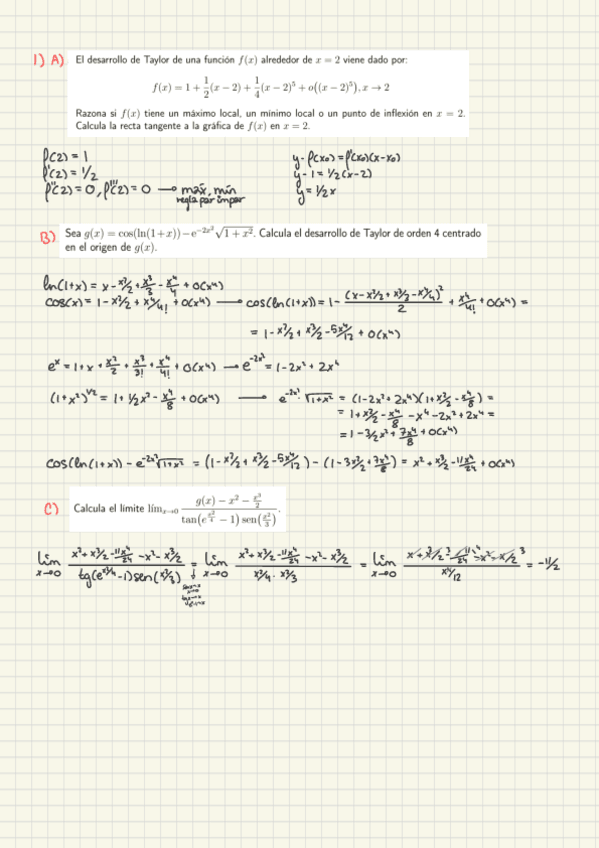 1) A) El desarrollo de Taylor de una función f(x) alrededor de x = 2 viene dado por:
f(x) = 1 + 1/2(x − 2) + 1/4(x − 2)⁵ + o((x − 2)⁵), x → 2
Razona si f(x) tiene un máximo local, un minimo local o un punto de inflexión en x = 2.
Calcula la recta tangente a la gráfica de f(x) en x = 2.
f(2) = 1
f'(2) = 1/2
f''(2) = 0, f'''(2) = 0 → máx, mín
regla par impar
y - f(x₀) = f'(x₀)(x-x₀)
y - 1 = 1/2(x-2)
y = 1/2x
B) Sea g(x) = cos(ln(1+x)) − e^(−2x²)√(1 + x²). Calcula el desarrollo de Taylor de orden 4 centrado
en el origen de g(x).
ln(1+x) = x - x²/2 + x³/3 - x⁴/4 + o(x⁴)
cos(x) = 1 - x²/2 + x⁴/4! + o(x⁴) → cos(ln(1+x)) = 1 - (x - x²/2 + x³/3 - x⁴/4)²/2 + x⁴/4! + o(x⁴) =
= 1 - x²/2 + x³/2 - 5x⁴/12 + o(x⁴)
eˣ = 1 + x + x²/2 + x³/3! + x⁴/4! + o(x⁴) → e^(-2x²) = 1 - 2x² + 2x⁴
(1+x²)^(1/2) = 1 + 1/2x² - x⁴/8 + o(x⁴) → e^(-2x²)·√(1+x²) = (1 - 2x² + 2x⁴)(1 + x²/2 - x⁴/8) =
= 1 + x²/2 - x⁴/8 - x⁴ - 2x² + 2x⁴ =
= 1 - 3/2x² + 7x⁴/8 + o(x⁴)
cos(ln(1+x)) - e^(-2x²)√(1+x²) = (1 - x²/2 + x³/2 - 5x⁴/12) - (1 - 3x²/2 + 7x⁴/8) = x² + x³/2 - 11x⁴/24 + o(x⁴)
C) Calcula el límite lím x→0 (g(x) − x² − x³/2)/(tan(e^(x²/4) − 1) sen(x²/3)).
lim x→0 (x² + x³/2 - 11x⁴/24 - x² - x³/2)/(tg(e^(x²/4) - 1) sen(x²/3)) = lim x→0 (x² + x³/2 - 11x⁴/24 - x² - x³/2)/(x²/4 · x²/3) = lim x→0 (x² + x³/2 - 11x⁴/24 - x² - x³/2)/(x⁴/12) = -11/2